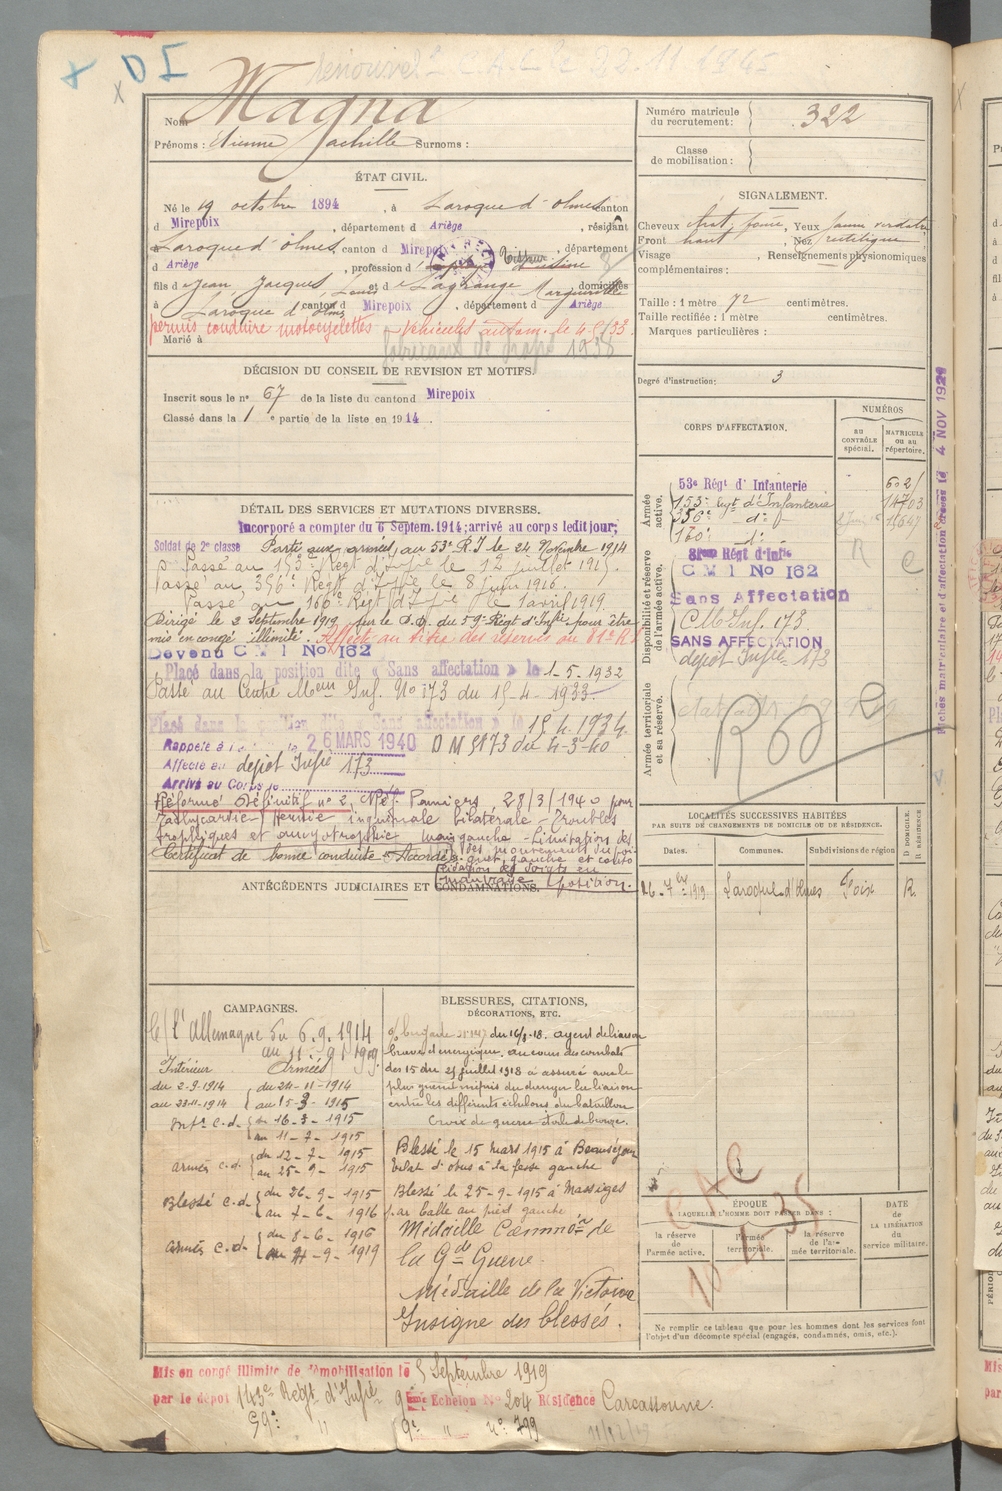 renouvelé C.A.C le 22.11.1945
X DI
Nom Magna
Prénoms : Etienne Jachille Surnoms :
ÉTAT CIVIL.
Né le 19 octobre 1894, à Laroque d'olmes canton
d Mirepoix, département d Ariège, résidant
à Laroque d'olmes canton d Mirepoix, département
d Ariège, profession d' Tisseur
fils d Jean Jacques Louis et d Lagrange Marguerite domiciliés
à Laroque d'olmes canton d Mirepoix, département d Ariège
permis conduire motocyclettes - véhicules autom. le
Marié à
fabricant de drap 1938
DÉCISION DU CONSEIL DE REVISION ET MOTIFS.
Inscrit sous le n° 67 de la liste du canton d Mirepoix
Classé dans la 1 e partie de la liste en 1914.
DÉTAIL DES SERVICES ET MUTATIONS DIVERSES.
Incorporé a compter du 6 Septem. 1914; arrivé au corps ledit jour;
Soldat de 2e classe Parti aux armées, au 53e R.I le 24 Novembre 1914
Passé au 153e Regt d'Infie le 12 juillet 1915.
Passé au 356e Regt d'Infie le 8 juin 1916.
Passé au 160e Regt d'Infie le 1 avril 1919.
Dirigé le 2 Septembre 1919 sur le D.D. du 59e Régt d'Infie pour être
mis en congé illimité. Affecté au titre des réserves au 81e RI
Devenu C M I No 162
Placé dans la position dite « Sans affectation » le 1-5-1932
Passé au Centre Meur Inf. No 173 du 15-4-1933
Placé dans la position dite « Sans affectation » le 15.4.1934
Rappelé à l 26 MARS 1940 D M 5173 du 4-3-40
Affecté au depot Infie 173
Arrivé au Corps le
Réformé Définitif n° 2, Pamiers, 28/3/1940 pour
Tachycardie - Hernie inguinale bilatérale - Troubles
trophiques et amyotrophie main gauche - Limitation des
mouvements du poi-
Certificat de bonne conduite "Accordé" gnet gauche et
des doigts en
mauvaise position.
ANTÉCÉDENTS JUDICIAIRES ET CONDAMNATIONS.
CAMPAGNES.
C/ l'Allemagne du 6.9.1914
au 1919.
Intérieur Armées
du 2-9-1914 du 24-11-1914
au 23-11-1914 au 15-3-1915
Intr c.d. du 16-3-1915
au 11-7-1915
armées c.d. du 12-7-1915
au 25-9-1915
Blessé c.d. du 26-9-1915
au 7-6-1916
armées c.d. du 8-6-1916
au -9-1919
BLESSURES, CITATIONS,
DÉCORATIONS, ETC.
du 16/8-18. agent de liaison
brave et énergique, au cours des combats
des 15 du 25 juillet 1918 a assuré avec le
plus grand mépris du danger la liaison
entre les différents échelons du bataillon
Croix de guerre étoile de bronze.
Blessé le 15 mars 1915 à Beauséjour
éclat d'obus à la fesse gauche
Blessé le 25-9-1915 à Massiges
par balle au pied gauche
Médaille Commve de
la Gde Guerre
Médaille de la Victoire
Insigne des blessés.
Mis en congé illimité de démobilisation le 5 Septembre 1919
par le dépôt 143e Régt d'Infie 9eme Echelon No 204 Résidence Carcassonne.
59e " 9e " n° 799
Numéro matricule
du recrutement : 322
Classe
de mobilisation :
SIGNALEMENT.
Cheveux chat. foncé, Yeux jaune verdatre
Front haut, Nez rectiligne
Visage , Renseignements physionomiques
complémentaires :
Taille : 1 mètre 72 centimètres.
Taille rectifiée : 1 mètre centimètres.
Marques particulières :
Degré d'instruction : 3
CORPS D'AFFECTATION.
NUMÉROS
au
CONTRÔLE
spécial.
MATRICULE
ou au
répertoire.
Armée
active.
53e Régt d'Infanterie
153e Regt d'Infanterie
356e d°
160e d°
Disponibilité et réserve
de l'armée active.
81eme Régt d'Infie
C M I No 162
Sans Affectation
C.M. Inf. 173.
SANS AFFECTATION
depot Infie 173
R C
Armée territoriale
et sa réserve.
Fiches matriculaire et d'affectation dressées le 4 NOV 1929
LOCALITÉS SUCCESSIVES HABITÉES
PAR SUITE DE CHANGEMENTS DE DOMICILE OU DE RÉSIDENCE.
Dates. Communes. Subdivisions de région D DOMICILE. R RÉSIDENCE
26-7bre-1919 Laroque-d'Olmes Foix R.
CAC
ÉPOQUE
À LAQUELLE L'HOMME DOIT PASSER DANS :
la réserve
de l'armée active.
l'armée
territoriale.
la réserve
de l'armée territoriale.
DATE
de
LA LIBÉRATION
du
service militaire.
Ne remplir ce tableau que pour les hommes dont les services font
l'objet d'un décompte spécial (engagés, condamnés, omis, etc.).